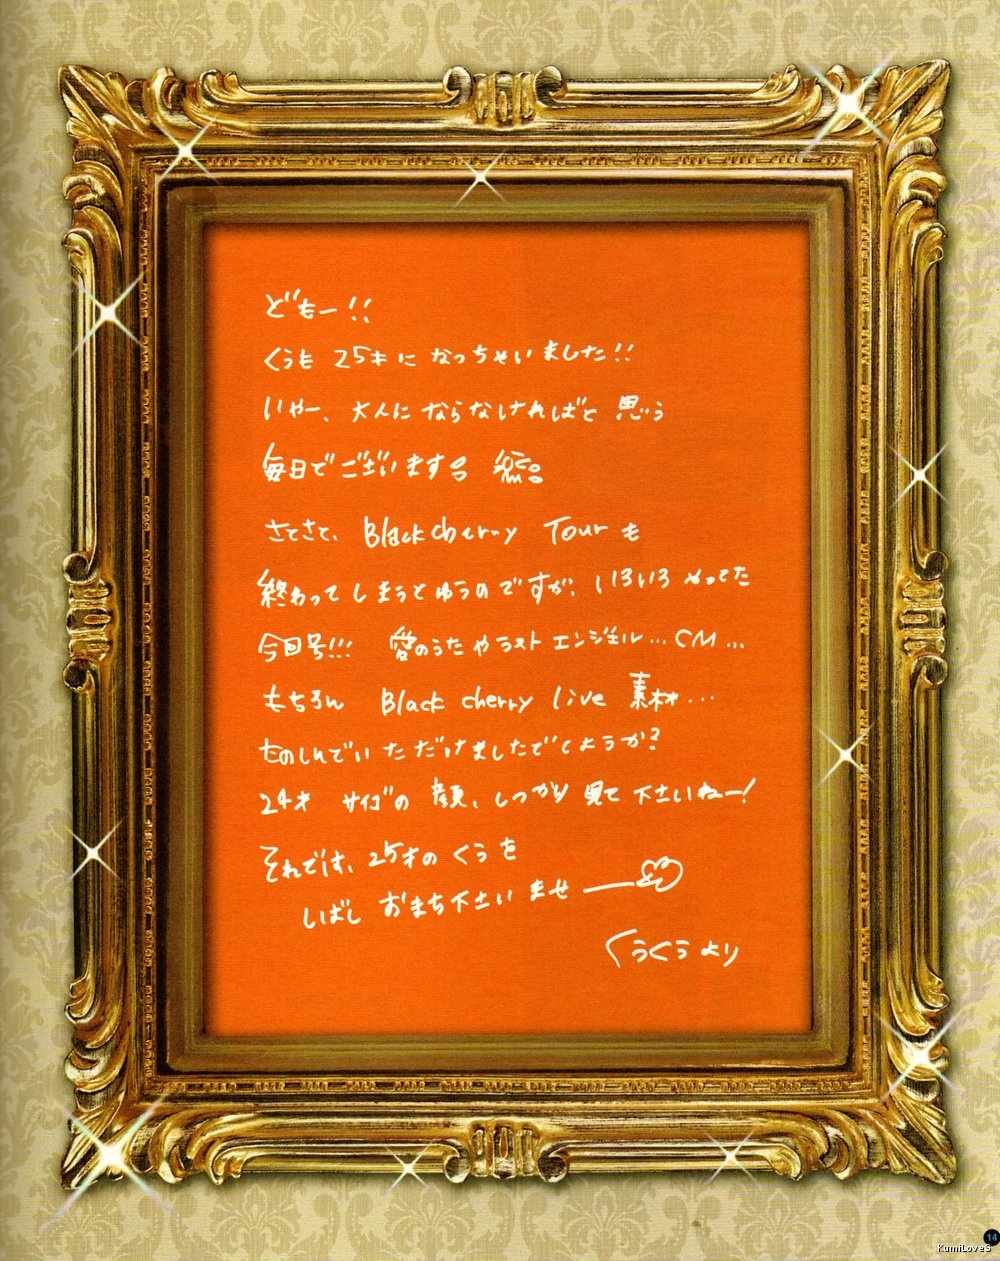 どもー!!
くうも 25才に なっちゃいました!!
いやー、大人に ならなければと 思う
毎日でございます。
さてさて、Black cherry Tourも
終わってしまうとゆうのですが、いろいろ やってた
今回号!!! 愛のうた や ラスト エンジェル…CM…
もちろん Black cherry live 素材…
たのしんでいただけましたでしょうか?
24才 サイゴの 顔、しっかり 見て 下さいねー!
それでは、25才の くうを
しばし おまち下さい ませ
くうくうより
14
KumiLove3